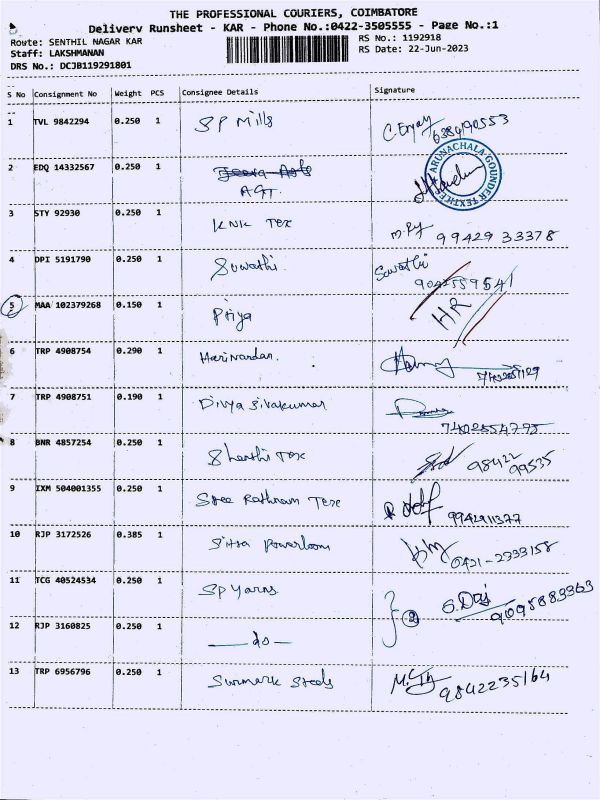 THE PROFESSIONAL COURIERS, COIMBATORE
Delivery Runsheet - KAR - Phone No.:0422-3505555 - Page No.:1
Route: SENTHIL NAGAR KAR
RS No.: 1192918
Staff: LAKSHMANAN
RS Date: 22-Jun-2023
DRS No.: DCJB119291801
S No Consignment No Weight PCS Consignee Details Signature
1 TVL 9842294 0.250 1 SP Mills
2 EDQ 14332567 0.250 1
AGT.
ARUNACHALA GOUNDER TEXTILES
3 STY 92930 0.250 1 KNK Tex 99429 33378
4 DPI 5191790 0.250 1 Suwathi. Swathi
5 MAA 102379268 0.150 1 Priya HR
6 TRP 4908754 0.290 1 Harivardan.
7 TRP 4908751 0.190 1 Divya Sivakumar
7402554795
8 BNR 4857254 0.250 1 Shanthi Tex 98422
99535
9 IXM 504001355 0.250 1 Sree Rathnam Tex 9942911377
10 RJP 3172526 0.385 1 Sitra Powerloom 0421-2333158
11 TCG 40524534 0.250 1 SP Yarns 2 9095883363
12 RJP 3160825 0.250 1 do
13 TRP 6956796 0.250 1 Surmark Steels 9842235164